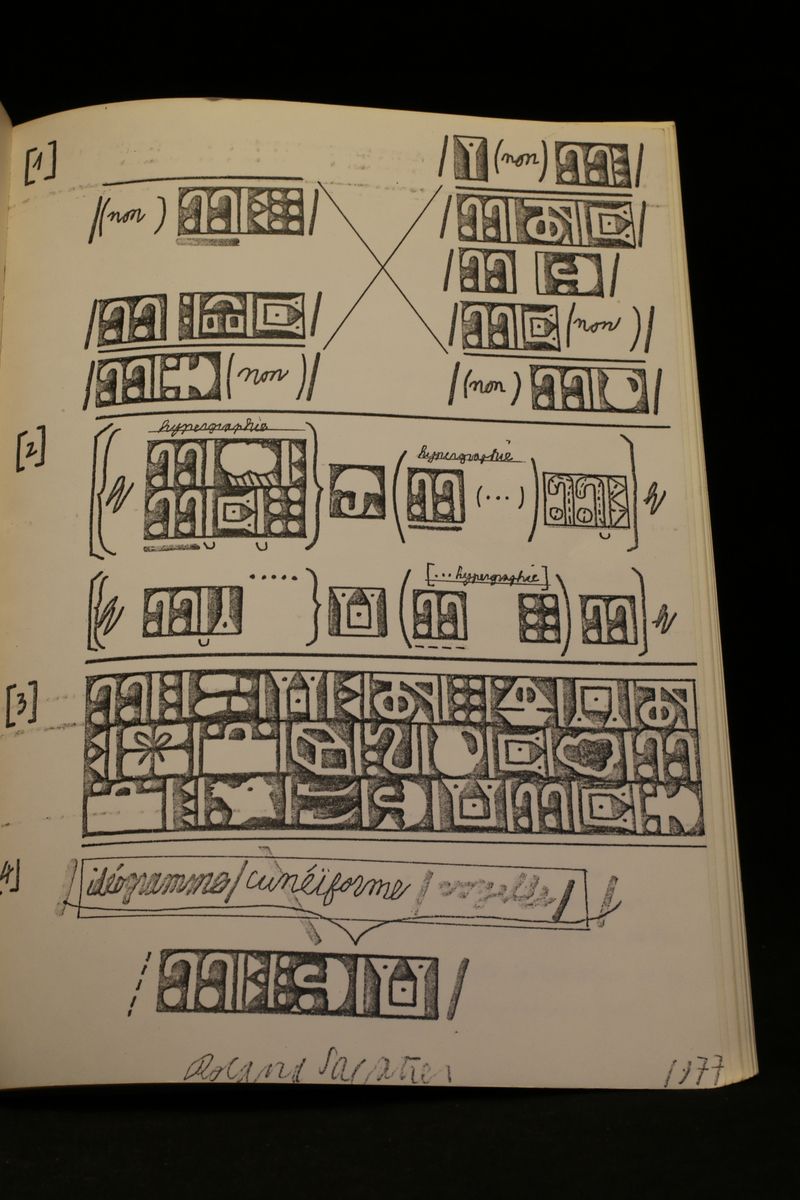 [1]
/ (non) /
/(non) /
/ (non) /
/ (non) /
/ (non) /
[2]
hypergraphie
hypergraphie
(...)
.....
[...hypergraphie]
[3]
4]
idéogramme/cunéïforme / voyelle /
Roland Sabatier 1977